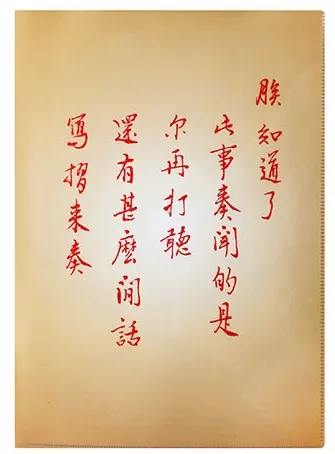 朕知道了
此事奏聞的是
尔再打聽
還有甚麼閒話
寫摺来奏